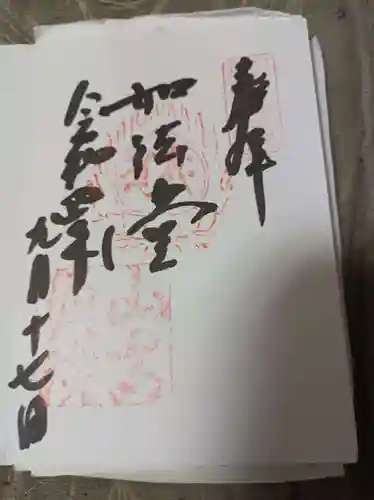 奉拝
如法堂
令和四年
九月十七日